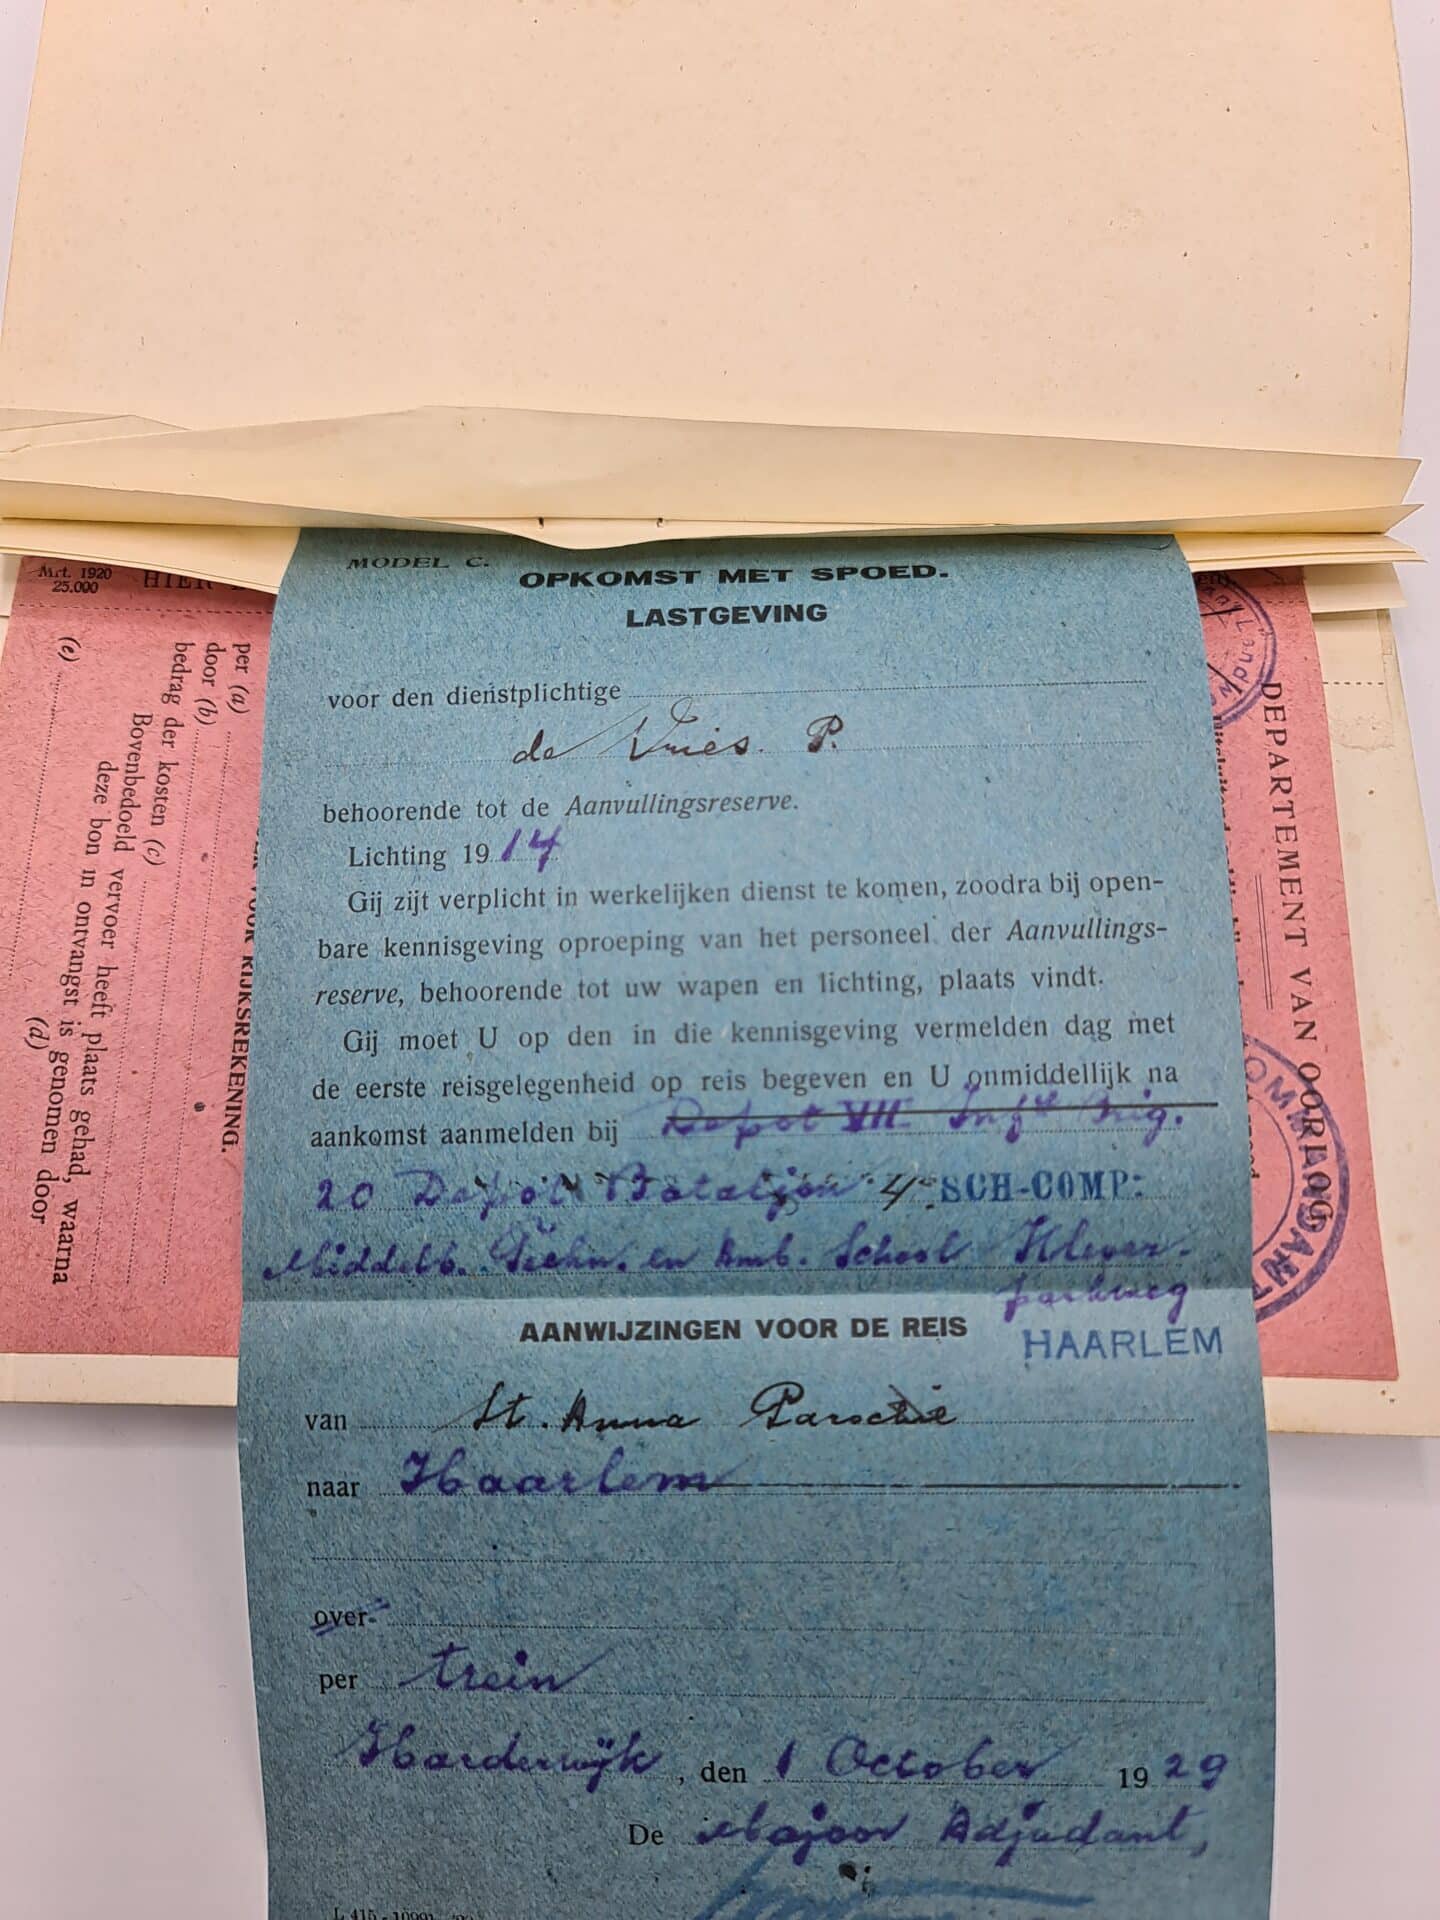 MODEL C.
OPKOMST MET SPOED.
LASTGEVING
voor den dienstplichtige
de Vries. P.
behoorende tot de Aanvullingsreserve.
Lichting 1914
Gij zijt verplicht in werkelijken dienst te komen, zoodra bij open-
bare kennisgeving oproeping van het personeel der Aanvullings-
reserve, behoorende tot uw wapen en lichting, plaats vindt.
Gij moet U op den in die kennisgeving vermelden dag met
de eerste reisgelegenheid op reis begeven en U onmiddellijk na
aankomst aanmelden bij Depot VII Infie Brig.
20 Depot Bataljon 4e SCH-COMP:
Middelb. Techn. en Amb. School Klever-
parkweg
HAARLEM
AANWIJZINGEN VOOR DE REIS
van St. Anna Parochie
naar Haarlem
over
per trein
Harderwijk, den 1 October 1929
De Majoor Adjudant,
Mrt. 1920
25.000
HIER
per (a)
door (b)
bedrag der kosten (c)
Bovenbedoeld vervoer heeft plaats gehad, waarna
deze bon in ontvangst is genomen door
(d)
(e)
VOOR RIJKSREKENING.
DEPARTEMENT VAN OORLOG